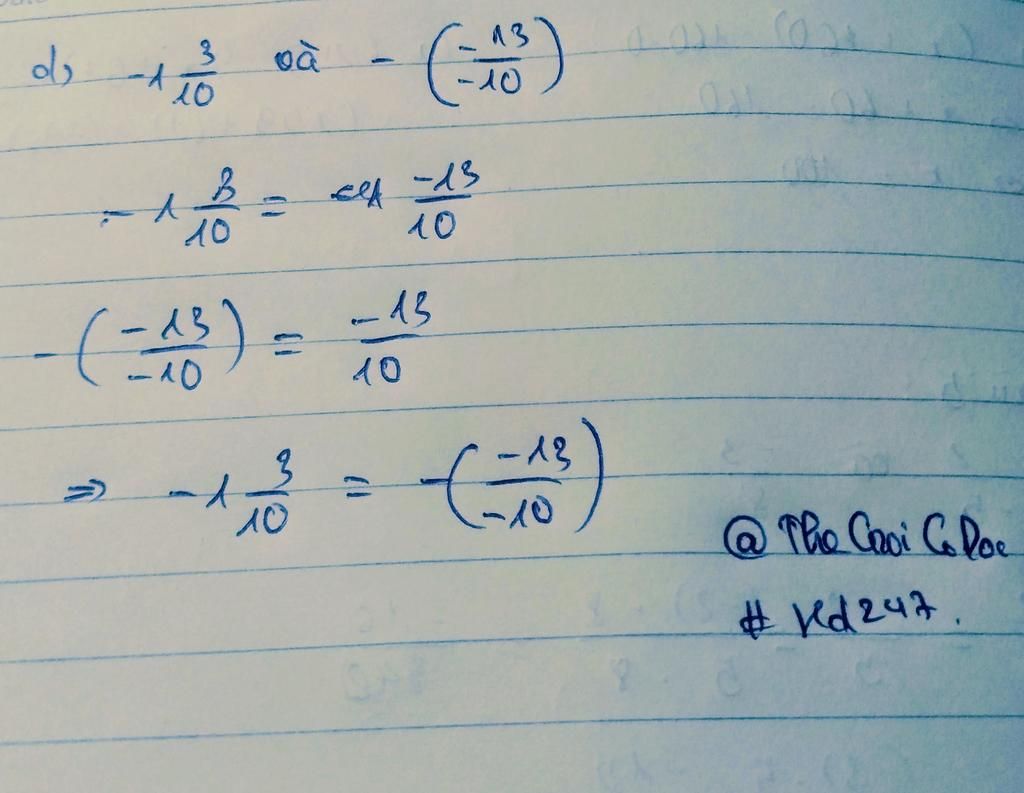 d, -1 3/10 và - (-13/-10)
- 1 3/10 = -13/10
- (-13/-10) = -13/10
⇒ -1 3/10 = -(-13/-10)
@ The Croi Co Doc
# Hd247.